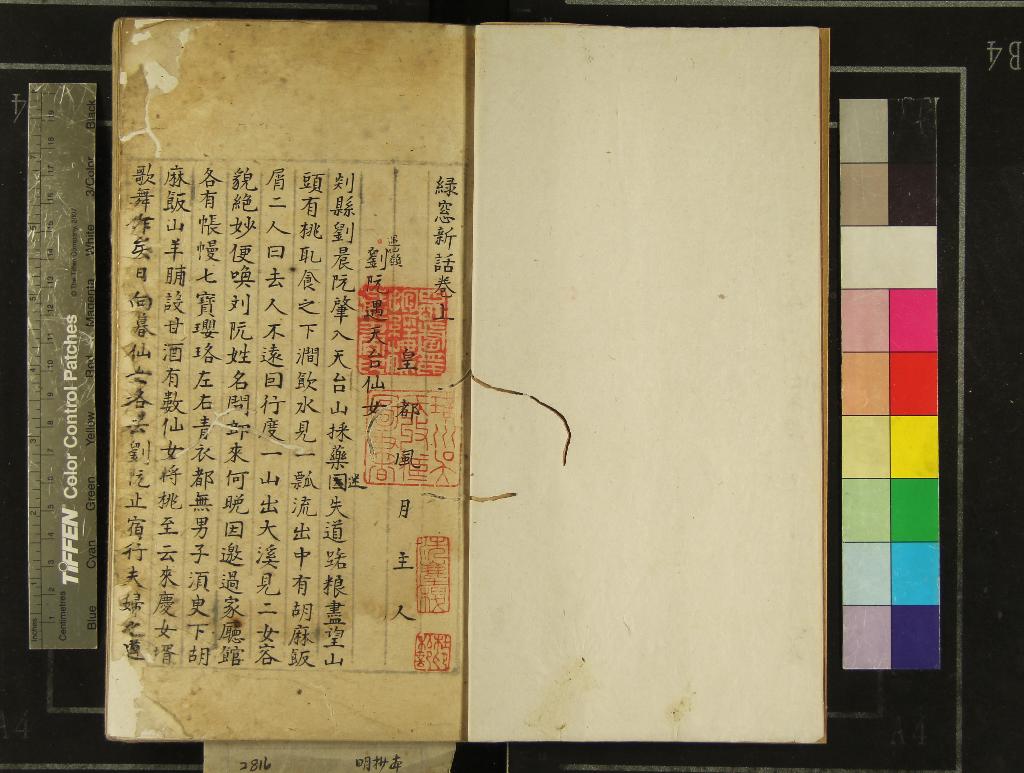 綠窓新話卷上
皇都風月主人
劉阮遇天台仙女
剡縣劉晨阮肇入天台山採藥因迷失道路粮盡望山
頭有桃耴食之下澗飲水見一瓢流出中有胡麻飯
屑二人曰去人不遠因行度一山出大溪見二女容
貌絶妙便喚刘阮姓名問郎來何晚因邀過家廳館
各有帳幔七寶瓔珞左右青衣都無男子須臾下胡
麻飯山羊脯設甘酒有數仙女將桃至云來慶女壻
歌舞作矣日向暮仙女各去劉阮止宿行夫婦之道
2816
明抄本
TIFFEN Color Control Patches
© The Tiffen Company, 2007
Inches
Centimetres
Blue
Cyan
Green
Yellow
Red
Magenta
White
3/Color
Black
B4
A4